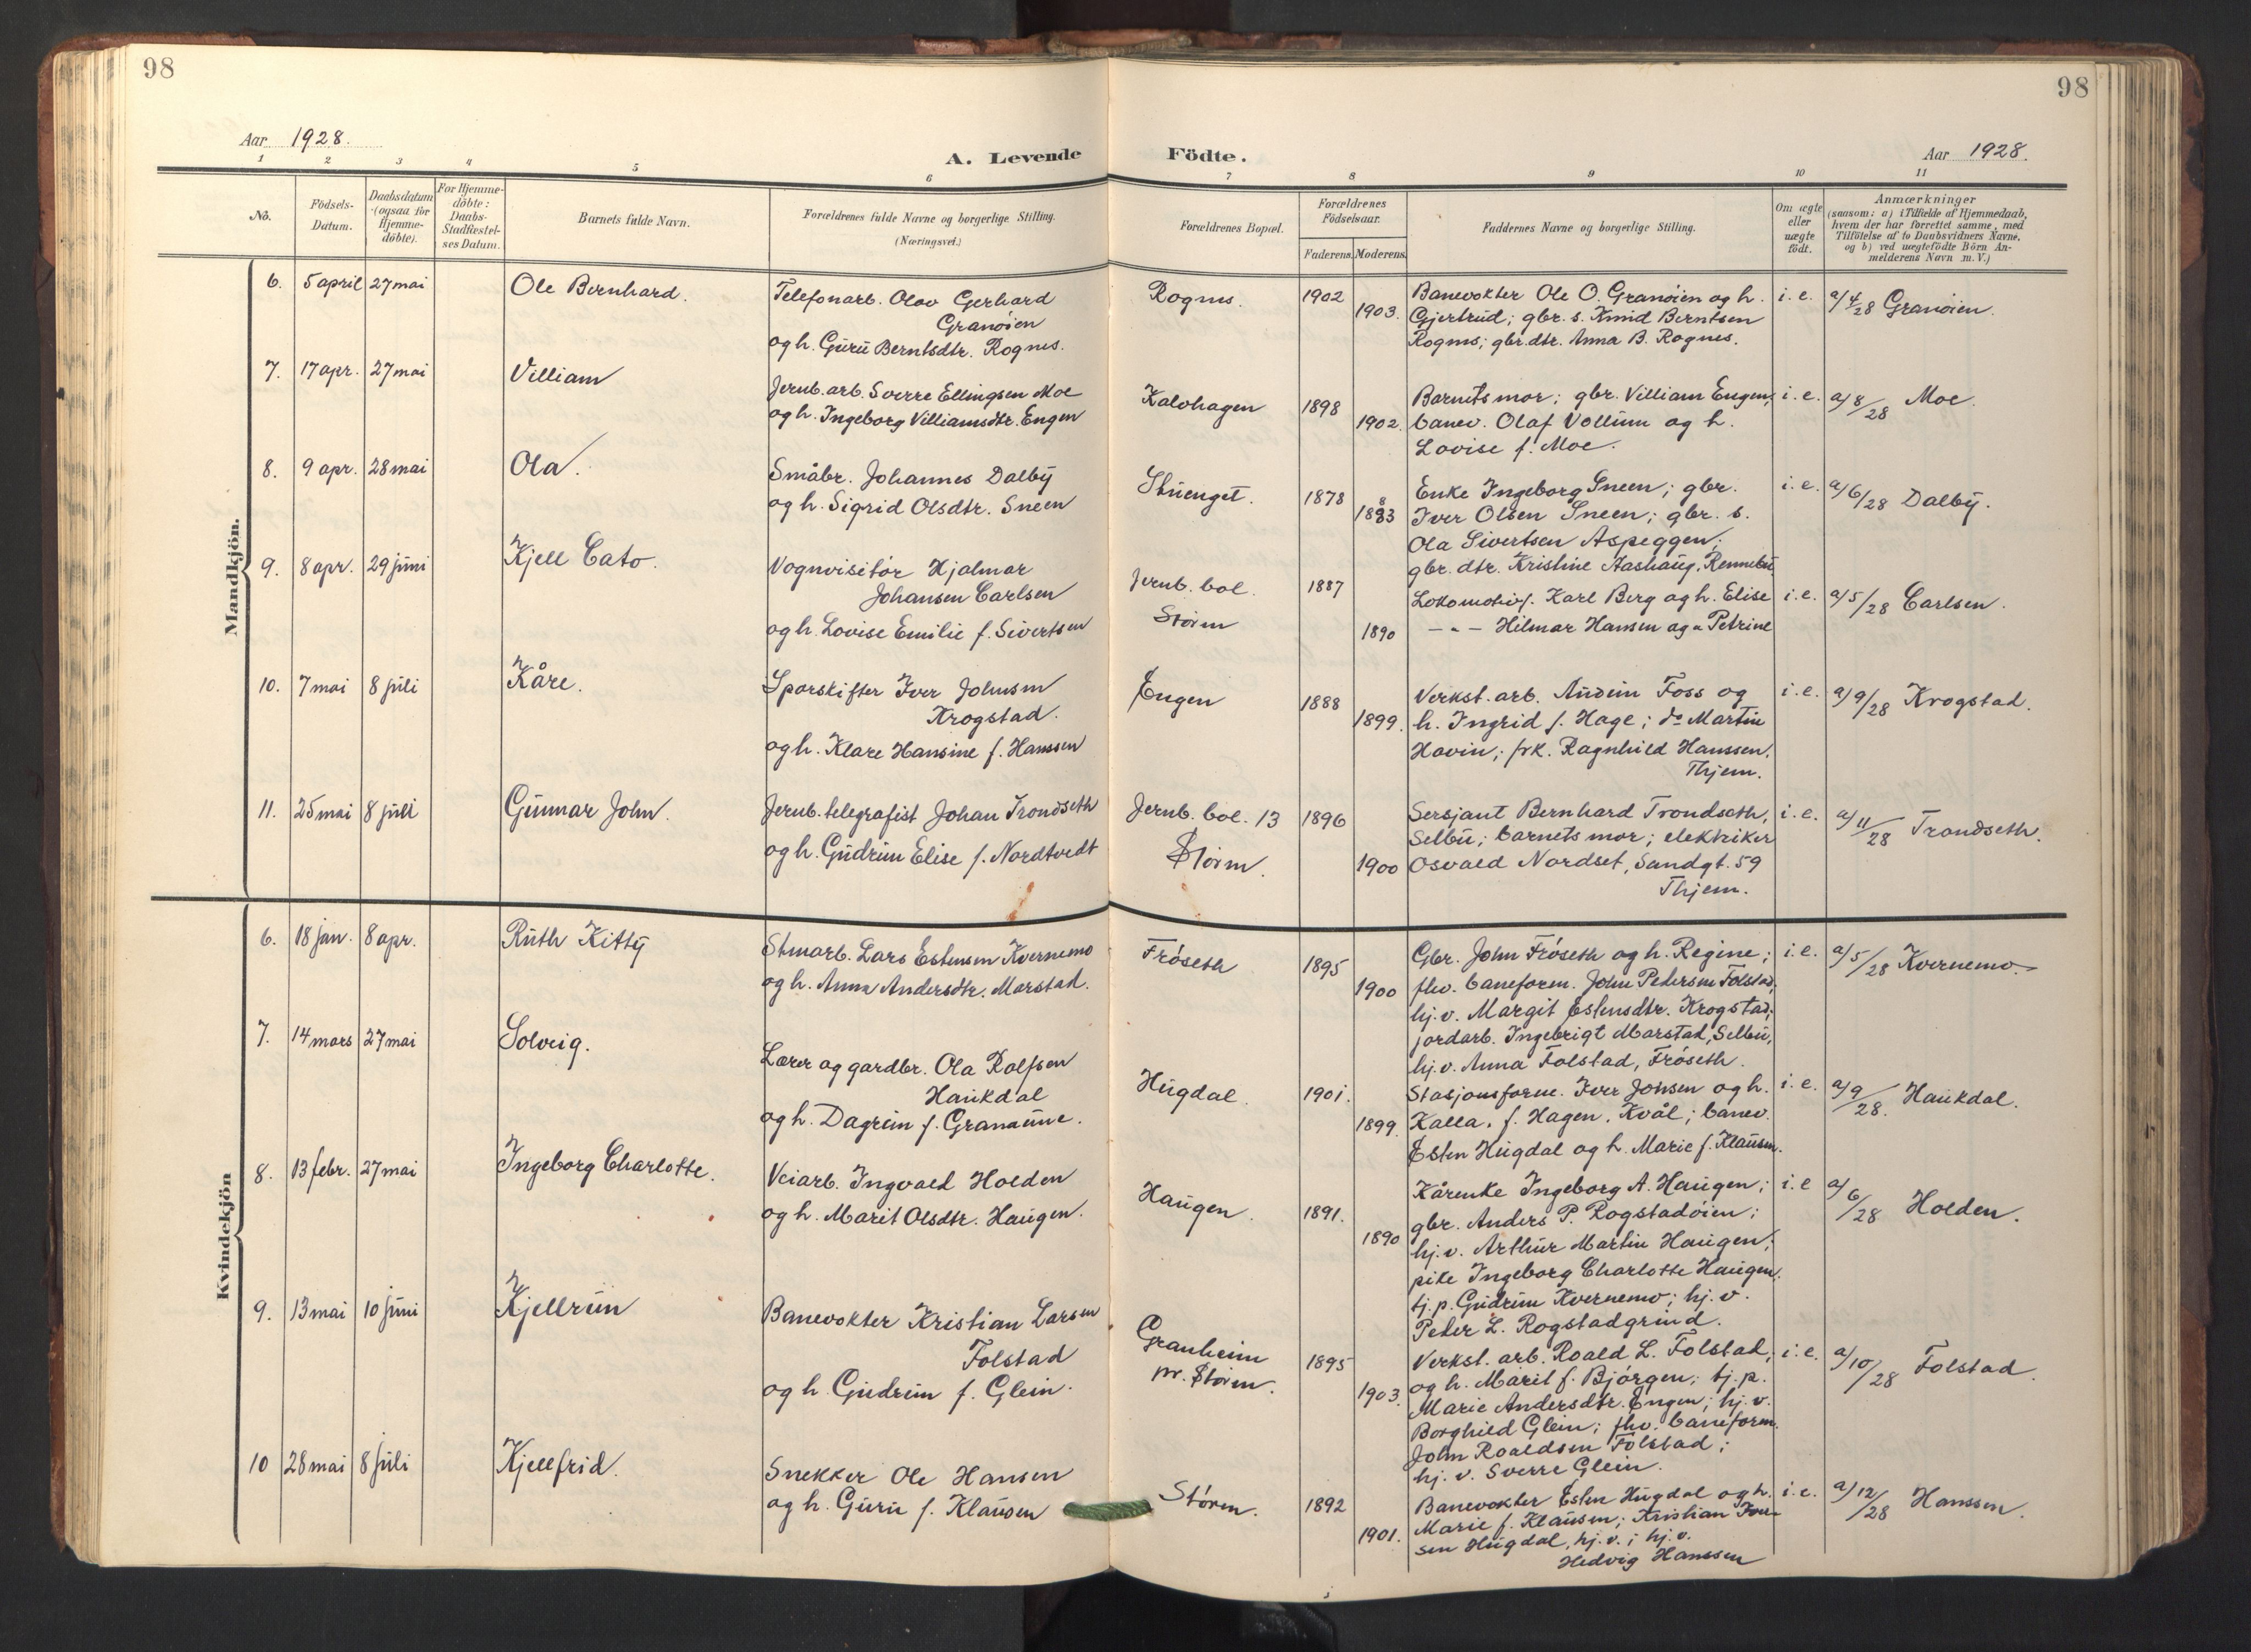 98
98
Aar 1928.
A. Levende Födte.
Aar 1928.
1 2 3 4 5 6 7 8 9 10 11
No.
Födsels-
Datum.
Daabsdatum
(ogsaa for
Hjemme-
döbte).
For Hjemme-
döbte:
Daabs-
Stadfæstel-
ses Datum.
Barnets fulde Navn.
Forældrenes fulde Navne og borgerlige Stilling.
(Næringsvei.)
Forældrenes Bopæl.
Forældrenes
Födselsaar.
Faderens. Moderens.
Faddernes Navne og borgerlige Stilling.
Om ægte
eller
uægte
født.
Anmærkninger
(saasom: a) i Tilfælde af Hjemmedaab,
hvem der har forrettet samme, med
Tilföielse af to Daabsvidners Navne,
og b) ved uægtefödte Börn An-
melderens Navn m. V.)
Mandkjön.
6. 5 april 27 mai
Ole Bernhard.
Telefonarb. Olav Gerhard
Granöien
og h. Guru Berntsdtr. Rognes.
Rognes.
1902
1903.
Banevokter Ole O. Granöien og h.
Gjertrud; gbr. s. Knud Berntsen
Rognes; gbr. dtr. Anna B. Rognes.
i. e.
a/ 4/28 Granöien.
7. 17 apr. 27 mai
Villiam
Jernb. arb. Sverre Ellingsen Moe
og h. Ingeborg Villiamsdtr. Engen
Kalvhagen
1898
1902.
Barnets mor; gbr. Villiam Engen;
banev. Olaf Vollum og h.
Lovise f. Moe.
i. e.
a/ 8/28 Moe.
8. 9 apr. 28 mai
Ola.
Småbr. Johannes Dalby
og h. Sigrid Olsdtr. Sneen
Stuenget.
1878
1883
Enke Ingeborg Sneen; gbr.
Iver Olsen Sneen; gbr. s.
Ola Sivertsen Aspeggen;
gbr. dtr. Kristine Aashaug, Rennebu.
i. e.
a/ 6/28 Dalby.
9. 8 apr. 29 juni
Kjell Cato.
Vognvisitör Hjalmar
Johansen Carlsen
og h. Lovise Emilie f. Sivertsen
Jernb. bol.
Stören
1887
1890
Lokomotivf. Karl Berg og h. Elise
— " — Hilmar Hansen og " Petrine
i. e.
a/ 5/28 Carlsen.
10. 7 mai 8 juli
Kåre.
Sporskifter Iver Johnsen
Krogstad.
og h. Klare Hansine f. Hanssen
Engen
1888
1899.
Verkst. arb. Audun Foss og
h. Ingrid f. Hage; do Martin
Hovin; frk. Ragnhild Hanssen,
Thjem.
i. e.
a/ 9/28 Krogstad.
11. 25 mai 8 juli
Gunnar John.
Jernb. telegrafist Johan Trondseth
og h. Gudrun Elise f. Nordtvedt
Jernb. bol. 13
Stören.
1896
1900
Sersjant Bernhard Trondseth,
Selbu; barnets mor; elektriker
Osvald Nordset, Sandgt. 59
Thjem.
i. e.
a/ 11/28 Trondseth.
Kvindekjön
6. 18 jan. 8 apr.
Ruth Kitty
Stenarb. Lars Estensen Kvernemo
og h. Anna Andersdtr. Marstad.
Fröseth
1895
1900
Gbr. John Fröseth og h. Regine;
fhv. baneform. John Pedersen Folstad;
hj. v. Margit Estensdtr. Krogstad;
jordarb. Ingebrigt Marstad, Selbu,
hj. v. Anna Folstad, Fröseth.
i. e.
a/ 5/28 Kvernemo.
7. 14 mars 27 mai
Solveig.
Lærer og gardbr. Ola Rolfsen
Haukdal
og h. Dagrun f. Granaune.
Hugdal.
1901.
1899.
Stasjonsform. Iver Jonsen og h.
Kalla. f. Hagen, Kvål; banev.
Esten Hugdal og h. Marie f. Klausen.
i. e.
a/ 9/28. Haukdal.
8. 13 febr. 27 mai
Ingeborg Charlotte.
Veiarb. Ingvald Holden
og h. Marit Olsdtr. Haugen.
Haugen.
1891.
1890
Kårenke Ingeborg A. Haugen;
gbr. Anders P. Rogstadöien;
hj. v. Arthur Martin Haugen;
pike Ingeborg Charlotte Haugen.
tj. p. Gudrun Kvernemo; hj. v.
Peter L. Rogstadgrind.
i. e
a/ 6/28 Holden.
9. 13 mai 10 juni
Kjellrun
Banevokter Kristian Larsen
Folstad
og h. Gudrun f. Glein.
Granheim
pr. Stören.
1895
1903.
Verkst. arb. Roald L. Folstad;
og h. Marit f. Björgen; tj. p.
Marie Andersdtr. Engen; hj. v.
Borghild Glein; fhv. baneform.
John Roaldsen Folstad;
hj. v. Sverre Glein.
i. e.
a/ 10/28 Folstad.
10 28 mai 8 juli
Kjellfrid.
Snekker Ole Hansen
og h. Guru f. Klausen
Stören.
1892
1901.
Banevokter Esten Hugdal og h.
Marie f. Klausen; Kristian Iver-
sen Hugdal, hj. v.; hj. v.
Hedvig Hanssen
i. e.
a/ 12/28 Hanssen.